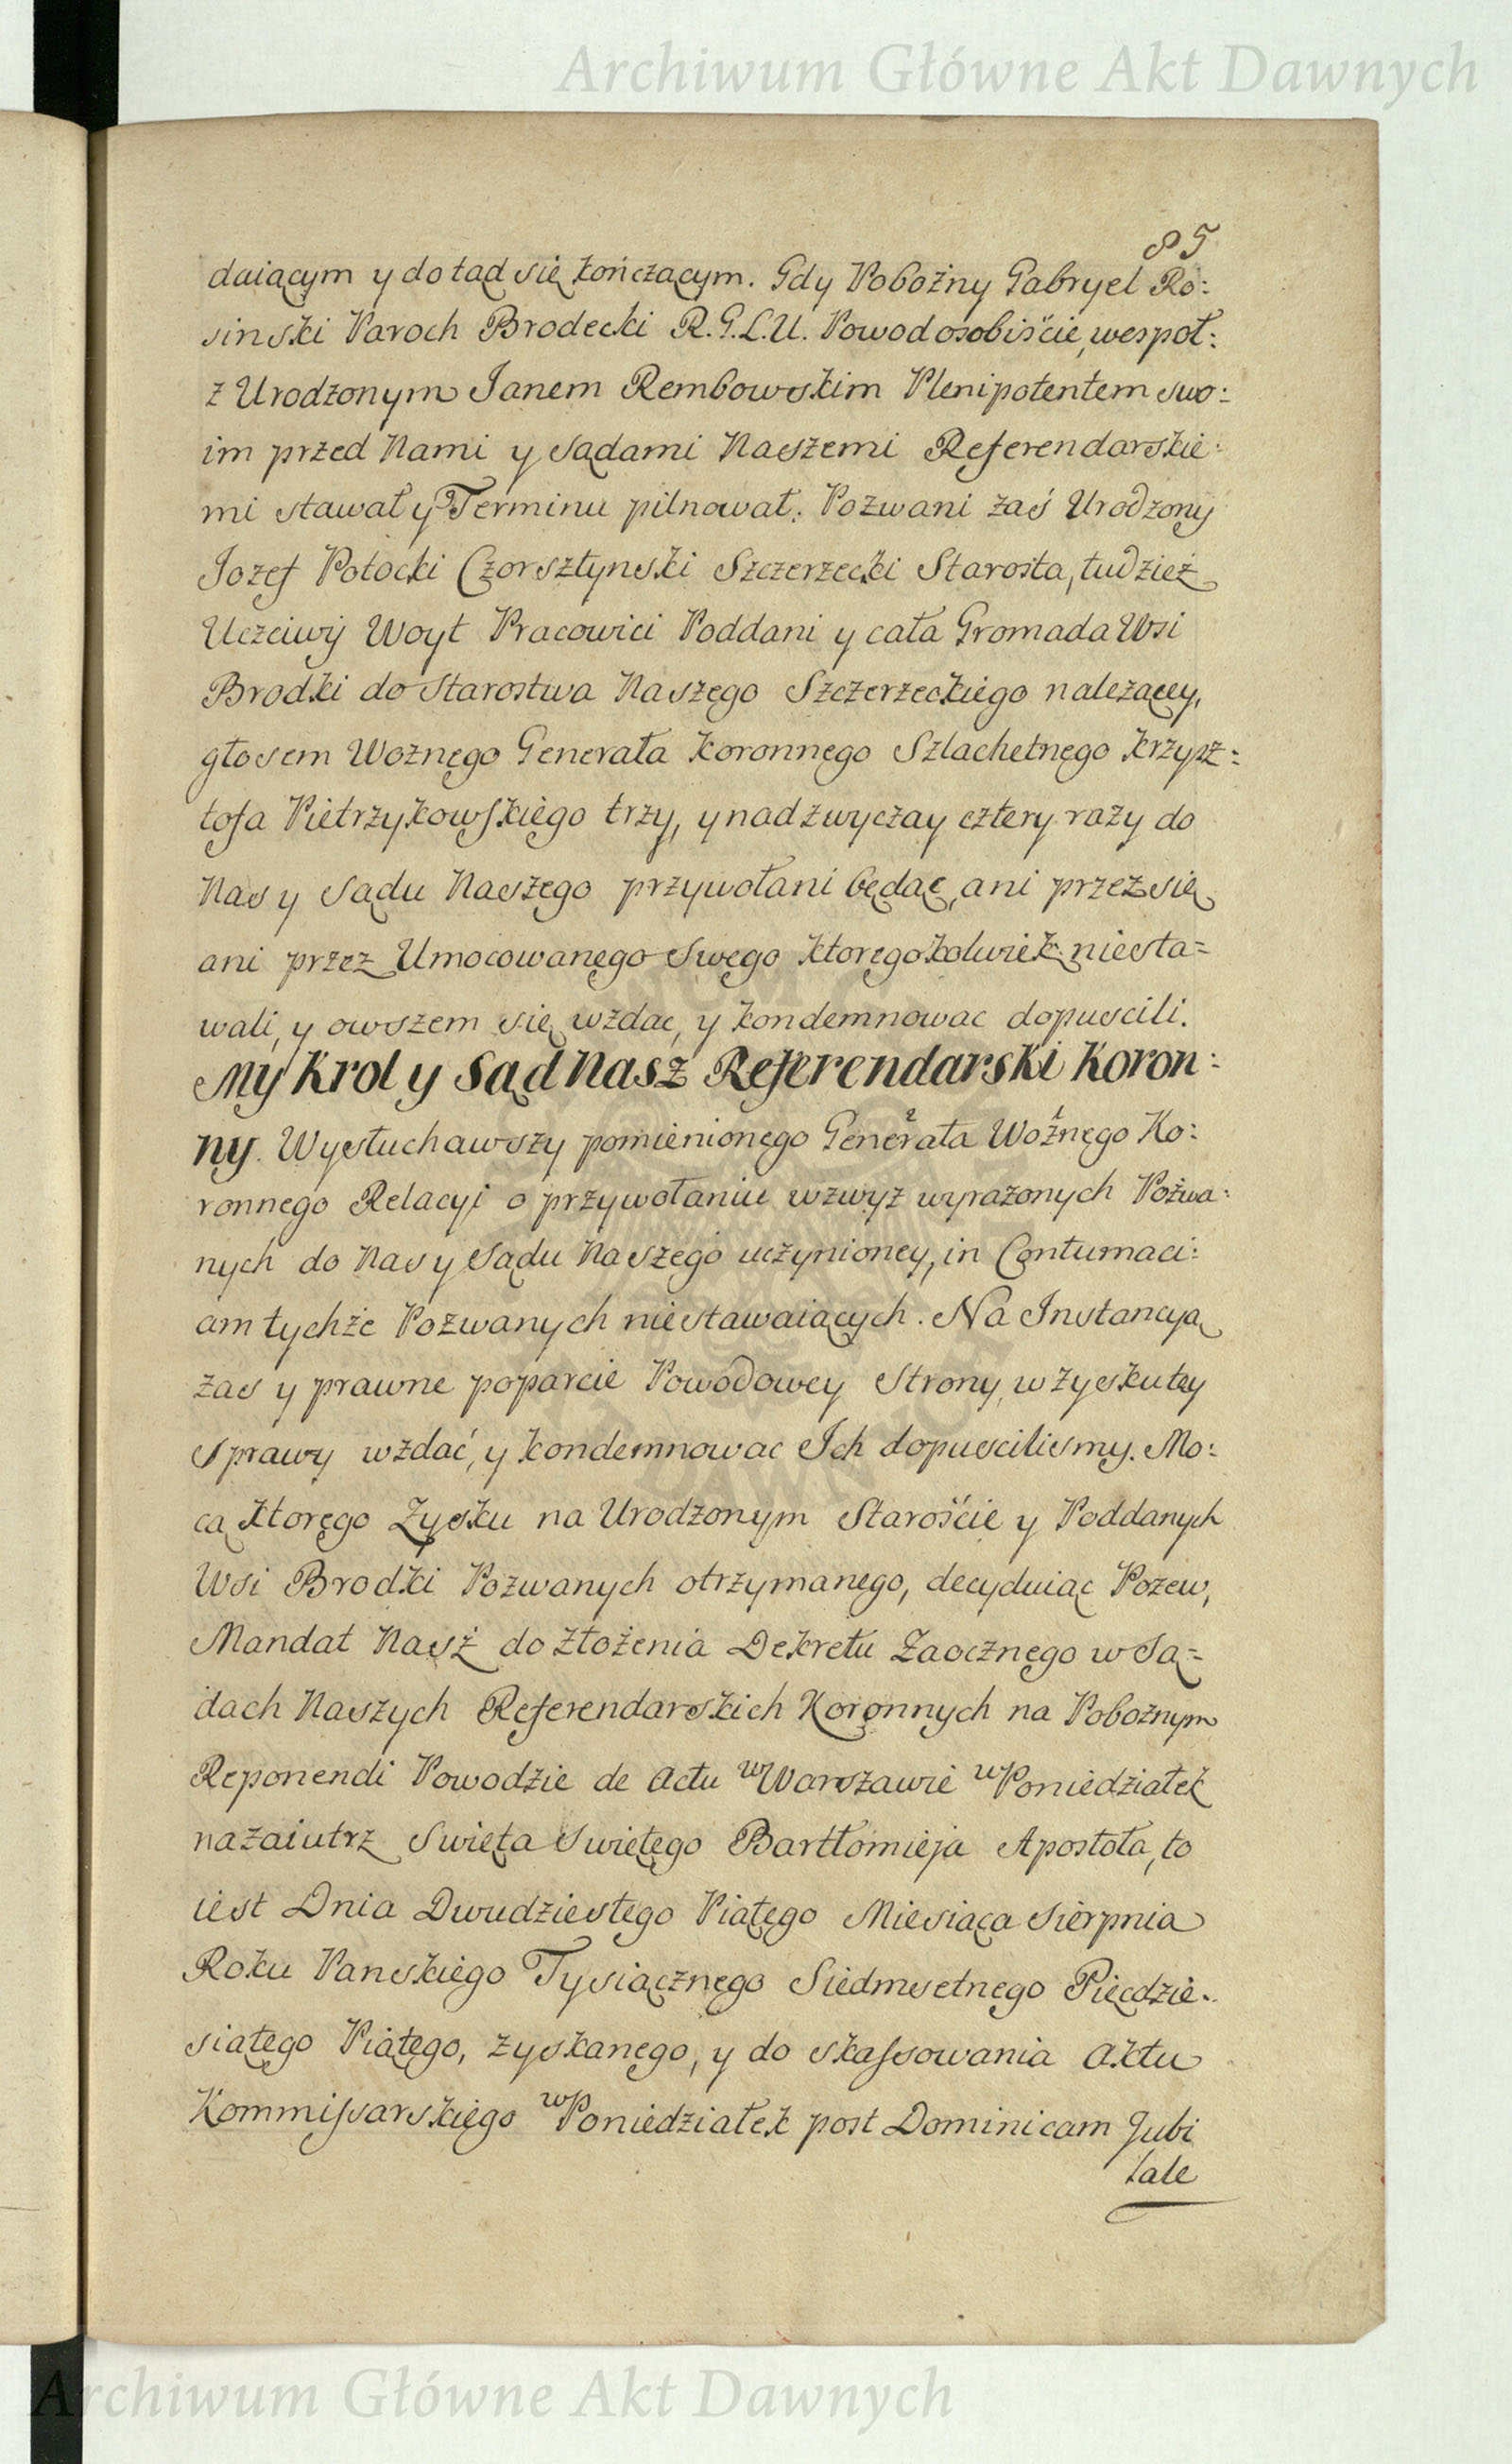 Archiwum Główne Akt Dawnych
85
daiącym y do tąd się kończącym. Gdy Pobożny Gabryel Ro:
sinski Paroch Brodecki R.G.L.U. Powod osobiście, wespoł:
z Urodzonym Janem Rembowskim Plenipotentem swo:
im przed Nami y Sądami Naszemi Referendarskie:
mi stawał y Terminu pilnował. Pozwani zaś Urodzony
Jozef Potocki Czorsztynski Szczerzecki Starosta, tudzież
Uczciwy Woyt Pracowici Poddani y cała Gromada Wsi
Brodki do Starostwa Naszego Szczerzeckiego należącey,
głosem Woznego Generała Koronnego Szlachetnego Krzysz:
tofa Pietrzykowskiego trzy, y nadzwyczay cztery razy do
Nas y Sądu Naszego przywołani będąc, ani przez się
ani przez Umocowanego Swego ktoregokolwiek niesta=
wali, y owszem się wzdac, y kondemnowac dopuscili.
My Krol y Sąd Nasz Referendarski Koron:
ny. Wysłuchawszy pomienionego Generała Woźnego Ko:
ronnego Relacyi o przywołaniu wzwyż wyrażonych Pozwa:
nych do Nas y Sądu Naszego uczynioney, in Contumaci:
am tychże Pozwanych niestawaiących. Na Instancyą
zas y prawne poparcie Powodowey Strony, w zysku tey
Sprawy wzdać, y kondemnowac Ich dopuscilismy. Mo:
cą ktorego Zysku na Urodzonym Starościе y Poddanych
Wsi Brodki Pozwanych otrzymanego, decyduiąc Pozew,
Mandat Nasz do złożenia Dekretu Zaocznego w Są=
dach Naszych Referendarskich Koronnych na Pobożnym
Reponendi Powodzie de Actu w Warszawie w Poniedziałek
nazaiutrz Swięta Swiętego Bartłomieja Apostoła, to
iest Dnia Dwudziestego Piątego Miesiąca Sierpnia
Roku Panskiego Tysiącznego Siedmsetnego Pięcdzie.
siątego Piątego, zyskanego, y do skassowania Aktu
Kommissarskiego w Poniedziałek post Dominicam Jubi
late
Archiwum Główne Akt Dawnych